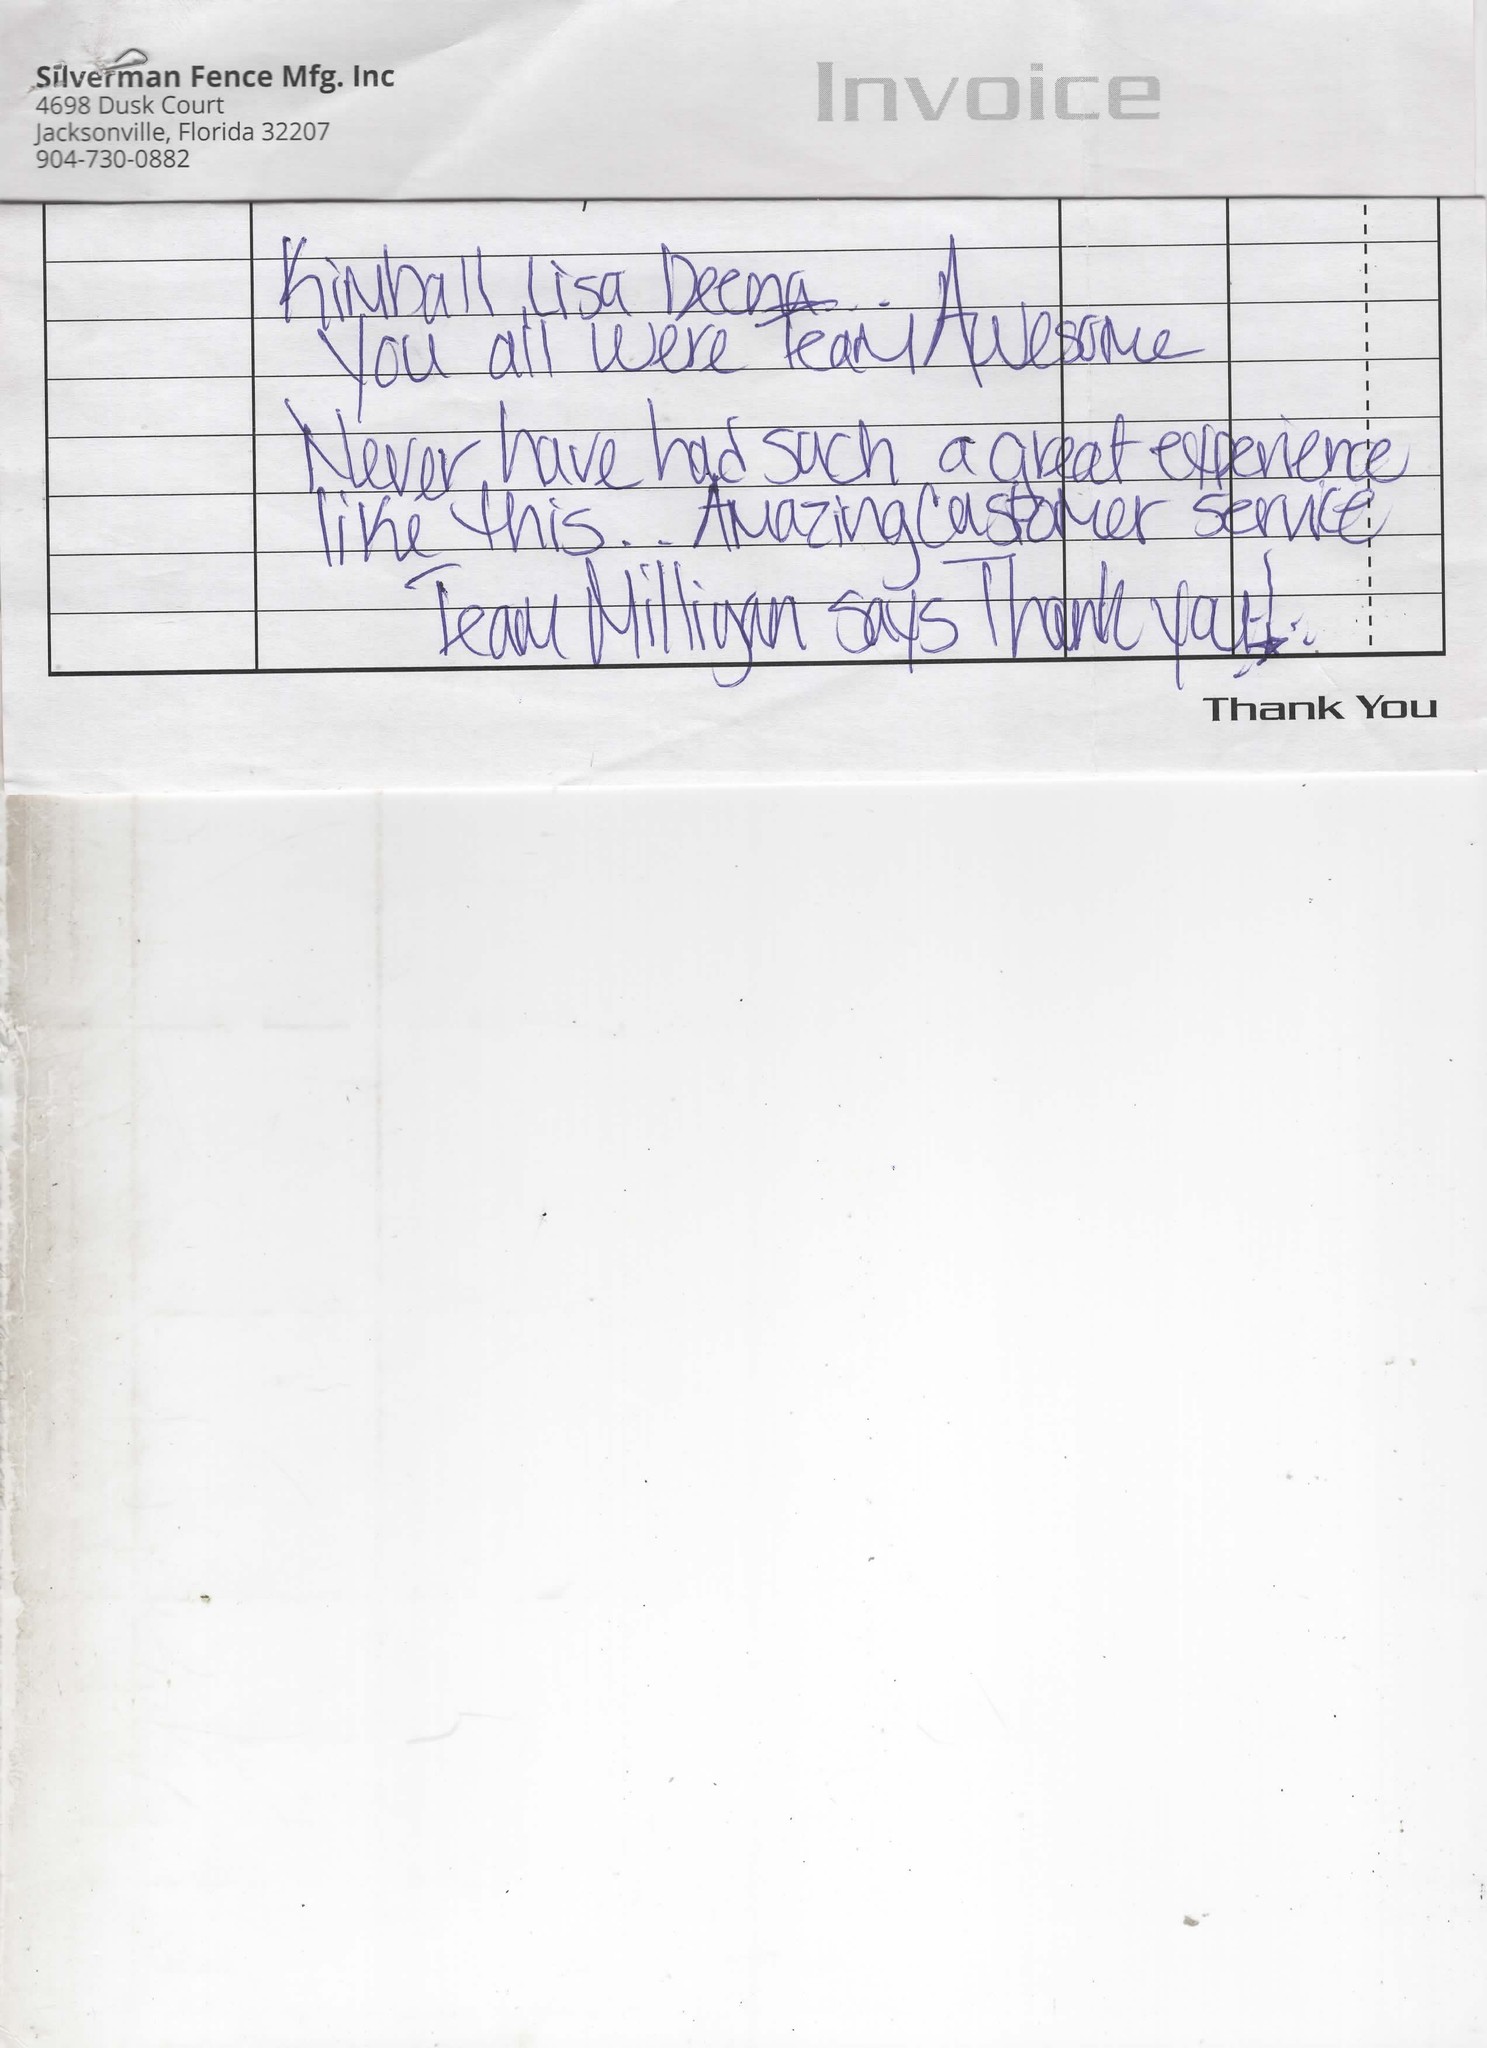 Silverman Fence Mfg. Inc
4698 Dusk Court
Jacksonville, Florida 32207
904-730-0882
Invoice
Kimball, Lisa Deena...
You all were Team Awesome
Never have had such a great experience
like this... Amazing Customer service
Team Milligan says Thank you!
Thank You